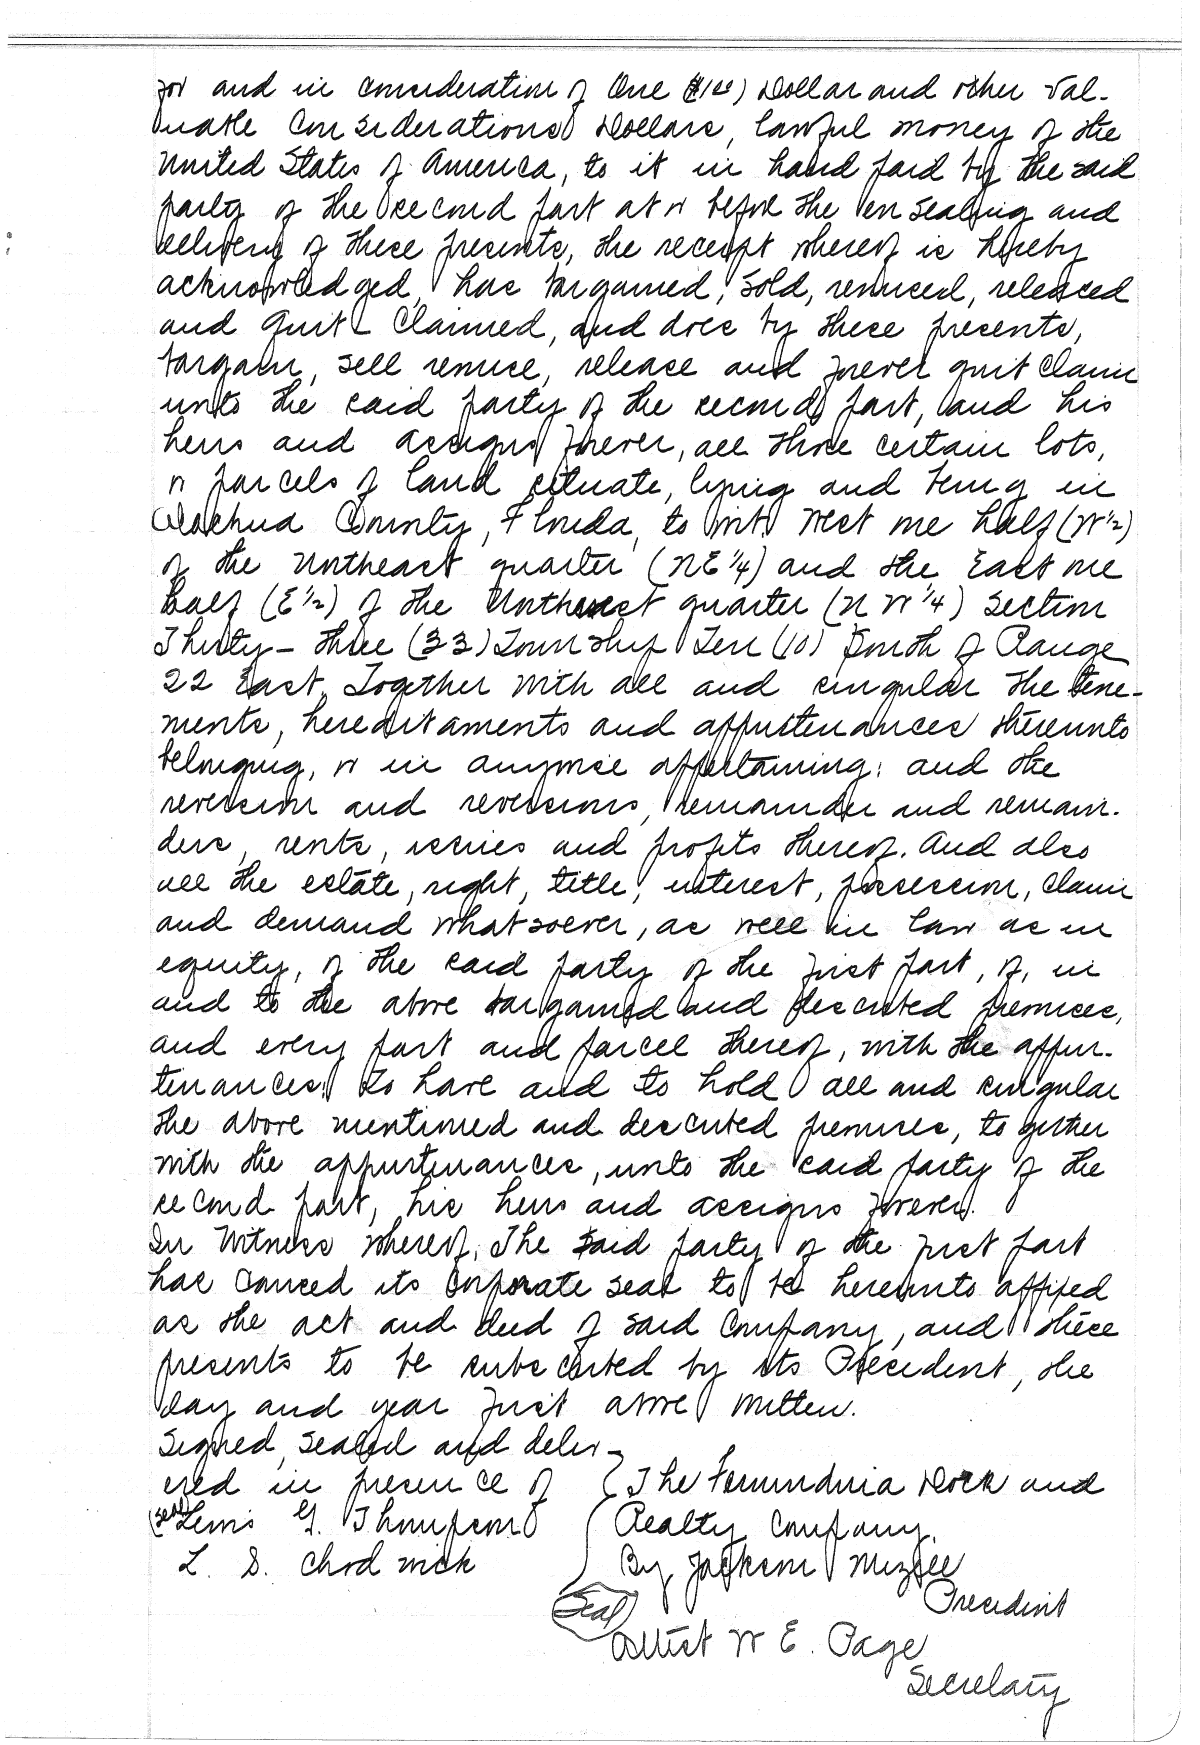 for and in consideration of One ($1.00) Dollar and other val-
uable Considerations Dollars, lawful money of the
United States of America, to it in hand paid by the said
party of the second part at or before the ensealing and
delivery of these presents, the receipt whereof is hereby
acknowledged, has bargained, sold, remised, released
and quit-claimed, and does by these presents,
bargain, sell remise, release and forever quit claim
unto the said party of the second part, and his
heirs and assigns forever, all those certain lots,
or parcels of land situate, lying and being in
Alachua County, Florida, to wit: West one half (W 1/2)
of the Northeast quarter (NE 1/4) and the East one
half (E 1/2) of the Northwest quarter (N W 1/4) Section
Thirty-three (33) Township Ten (10) South of Range
22 East. Together with all and singular the tene-
ments, hereditaments and appurtenances thereunto
belonging, or in anywise appertaining; and the
reversion and reversions, remainder and remain-
ders, rents, issues and profits thereof. And also
all the estate, right, title, interest, possession, claim
and demand whatsoever, as well in law as in
equity, of the said party of the first part, of, in
and to the above bargained and described premises,
and every part and parcel thereof, with the appur-
tenances: To have and to hold all and singular
the above mentioned and described premises, together
with the appurtenances, unto the said party of the
second part, his heirs and assigns forever.
In Witness whereof, The said party of the first part
has caused its corporate seal to be hereunto affixed
as the act and deed of said Company, and these
presents to be subscribed by its President, the
day and year first above written.
Signed, sealed and deliv-
ered in presence of ( The Fernandina Dock and
(seal) Lewis G. Thompson Realty Company.
L. S. Chadwick By Jackson Mizell
President
(Seal)
Attest W E. Page
Secretary